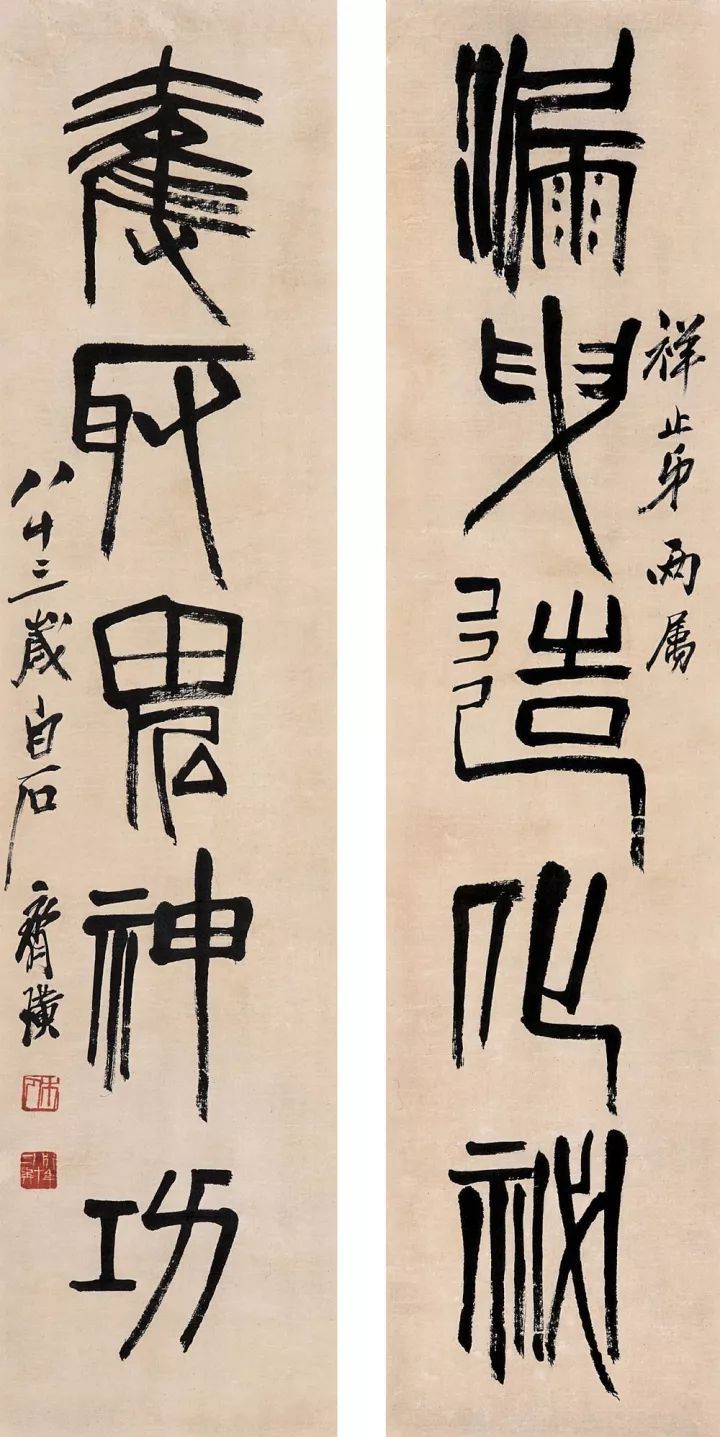 漏曳造化祕
祥止弟两属
奪取鬼神功
八十三歲白石齊璜
木人